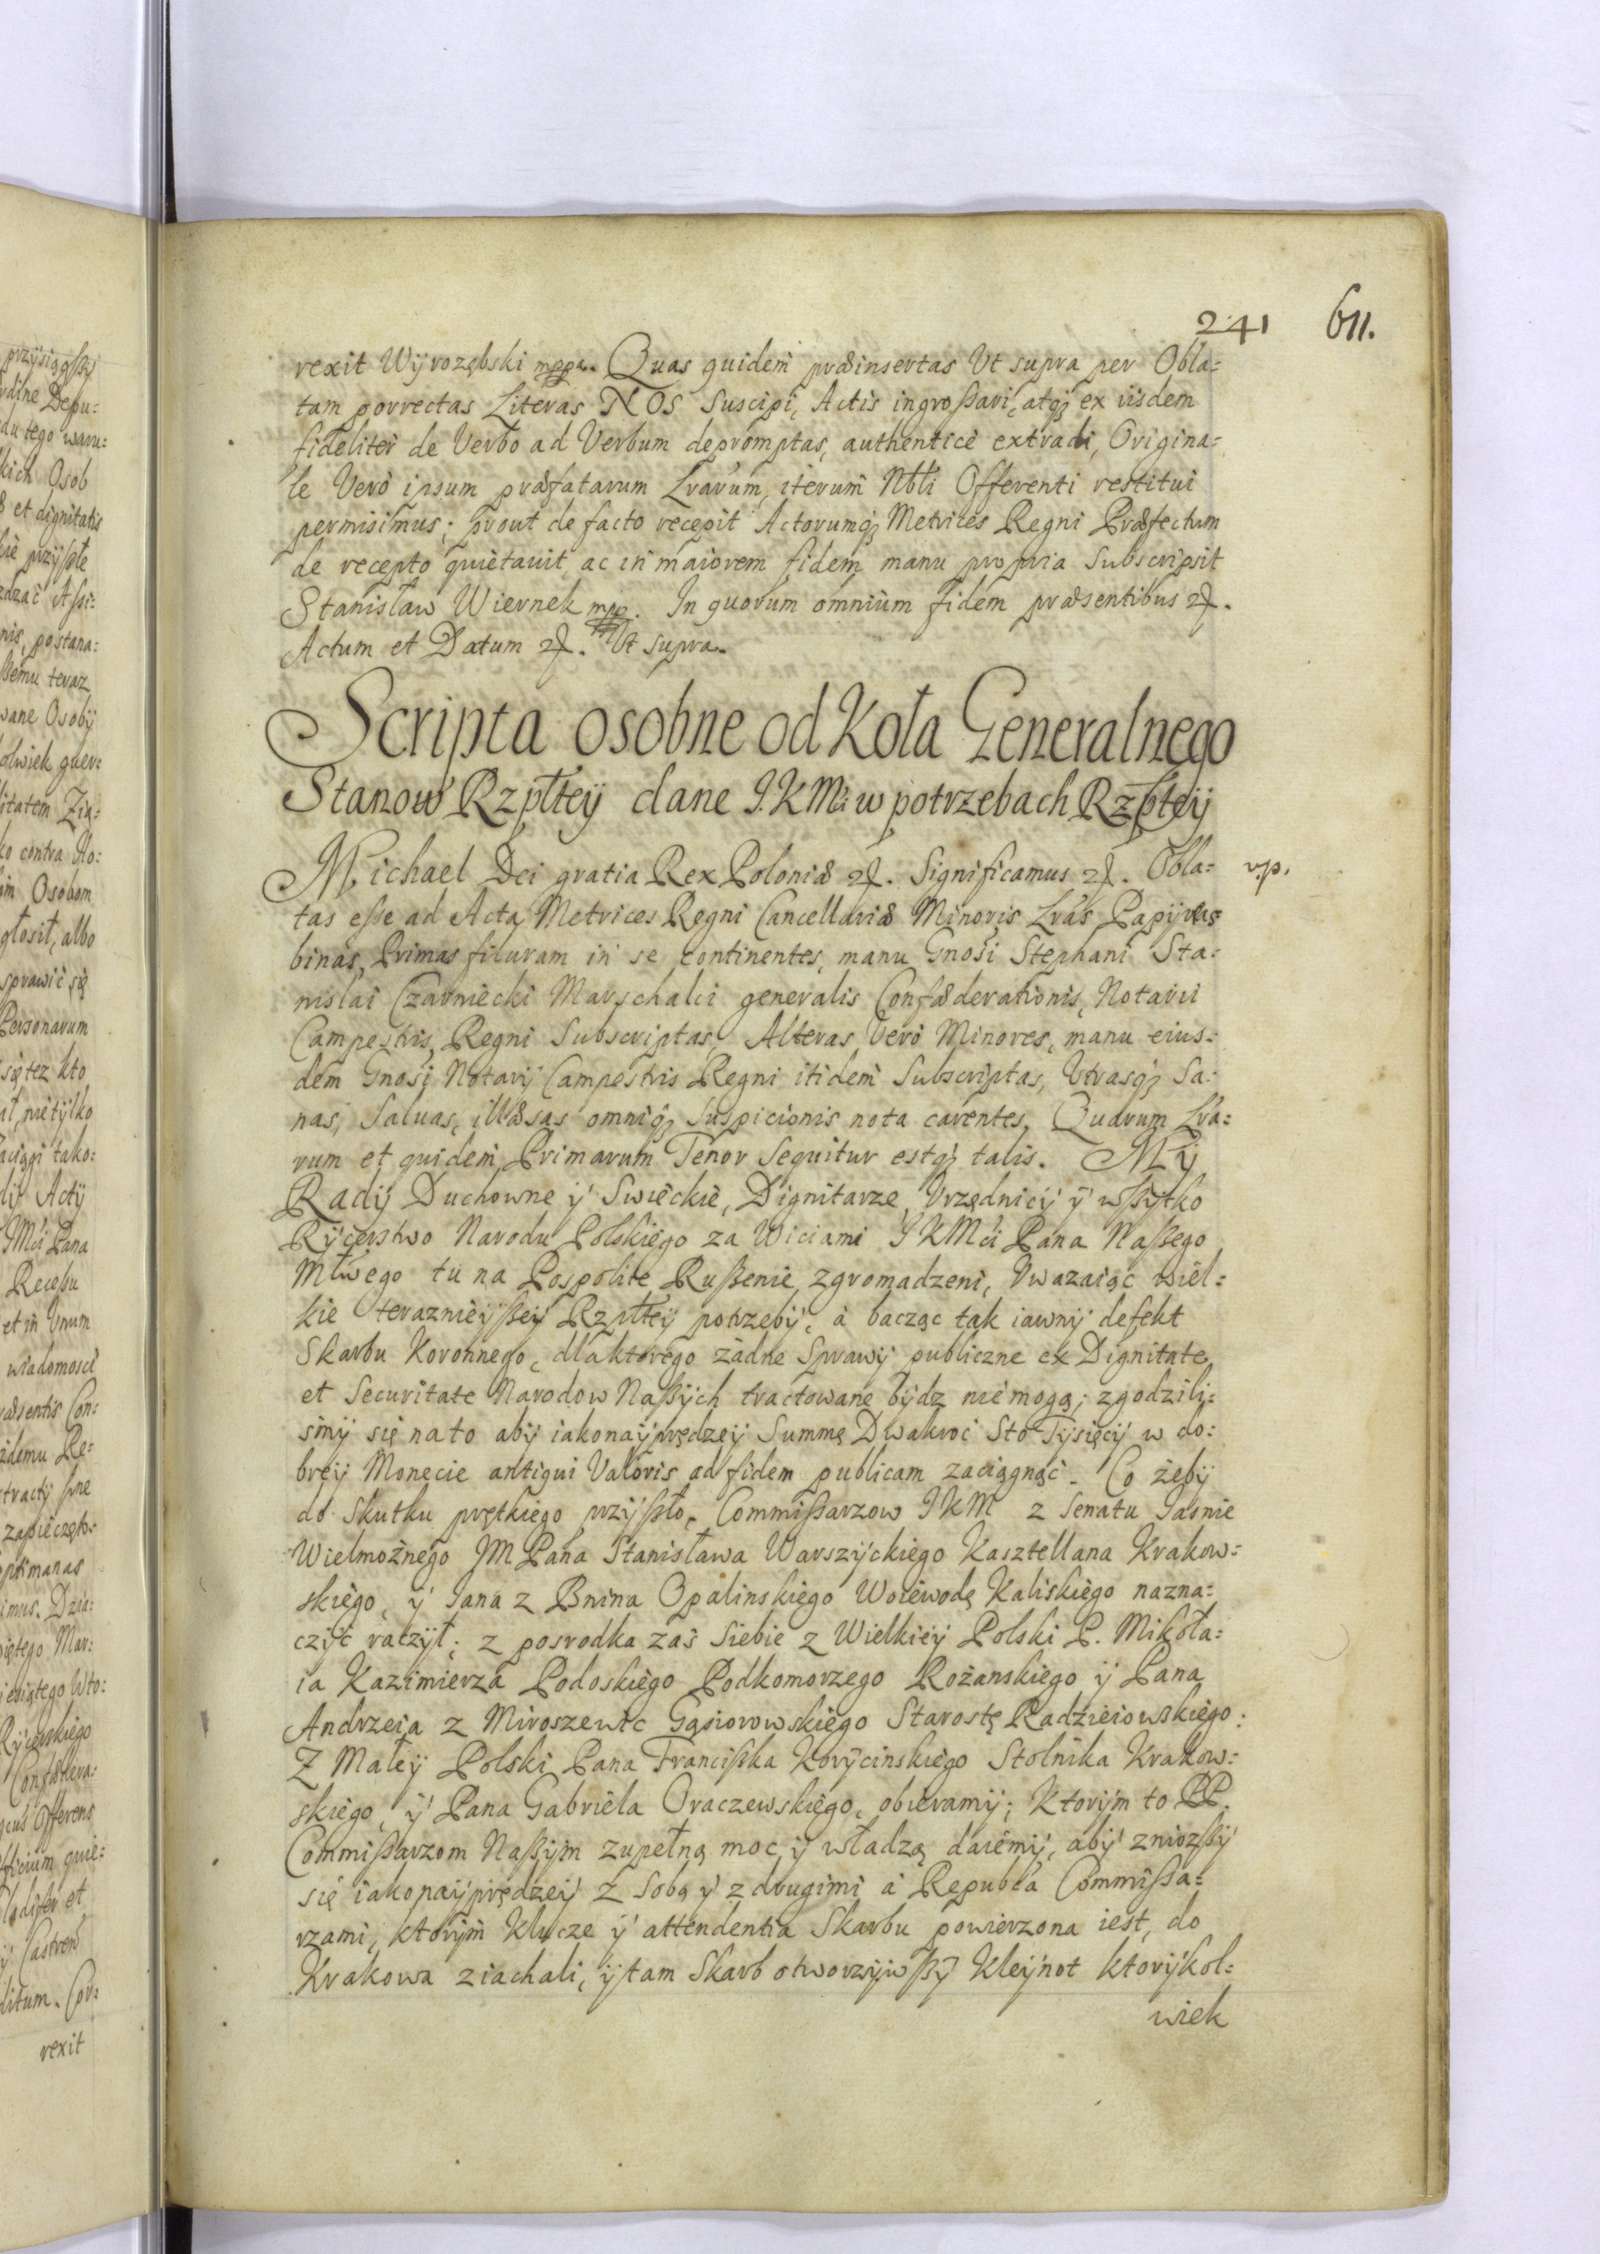 241 611.
rexit Wyrozębski mppa. Quas quidem præinsertas Ut supra per Obla=
tam porrectas Literas NOS Suscipi, Actis ingroßari, atq; ex iisdem
fideliter de Verbo ad Verbum depromptas, authenticè extradi, Origina=
le Verò ipsum præfatarum Lrarum, iterum Nbli Offerenti restitui
permisimus; prout de facto recepit Actorumq; Metrices Regni Præfectum
de recepto quietauit, ac in maiorem fidem manu propria Subscripsit
Stanisław Wiernek mpp. In quorum omnium fidem præsentibus &.
Actum et Datum &. Ut supra.
Scripta osobne od Koła Generalnego
Stanow Rzpltey dane J.K Mci w potrzebach Rzpltey
Michael Dei gratia Rex Poloniæ &. Significamus &. Obla= vp.
tas eße ad Acta Metrices Regni Cancellariæ Minoris Lras Papyreas
binas, Primas filuram in se continentes, manu Gnosi Stephani Sta=
nislai Czarniecki Marschalci generalis Confæderationis, Notarii
Campestris Regni Subscriptas, Alteras Verò Minores, manu eius=
dem Gnosi Notarij Campestris Regni itidem Subscriptas, Utrasq; Sa=
nas, Saluas, illæsas omniq; Suspicionis nota carentes, Quarum Lra=
rum et quidem Primarum Tenor Sequitur estq; talis. My
Rady Duchowne y Swieckie, Dignitarze, Vrzędnicy y wßytko
Rycerstwo Narodu Polskiego za Wiciami J K Mci Pana Naßego
Młwego tu na Pospolite Rußenie zgromadzeni, Vwazaiąc wiel=
kie teraznieyßey Rzpltey potrzeby, à bacząc tak iawny defekt
Skarbu Koronnego, dlaktorego żadne Sprawy publiczne ex Dignitate
et Securitate Narodow Naßych tractowane bydz niemogą; zgodzili=
smy się na to aby iakonayprędzey Summę Dwakroc Sto Tysięcy w do=
brey Monecie antiqui Valoris ad fidem publicam zaciągnąć. Co żeby
do Skutku prętkiego przyßło, Commißarzow J K M z Senatu Jasnie
Wielmożnego JM Pana Stanisława Warszyckiego Kasztellana Krakow=
skiego, y Jana z Bnina Opalinskiego Woiewodę Kaliskiego nazna=
czyć raczył; z posrodka zaś Siebie z Wielkiey Polski P. Mikoła=
ia Kazimierza Podoskiego Podkomorzego Rożanskiego y Pana
Andrzeia z Miroszewic Gąsiorowskiego Starostę Radzieiowskiego:
Z Małey Polski Pana Francißka Korycinskiego Stolnika Krakow=
skiego, y Pana Gabriela Oraczewskiego, obieramy; Ktorym to PP.
Commißarzom Naßym zupełną moc y władzą daiemy, aby zniozßy
się iakonayprędzey z Sobą y z drugimi à Republca Commißa=
rzami, ktorym Klucze y attendentia Skarbu powierzona iest, do
Krakowa ziachali, y tam Skarb otworzywßy Kleynot ktorykol=
wiek